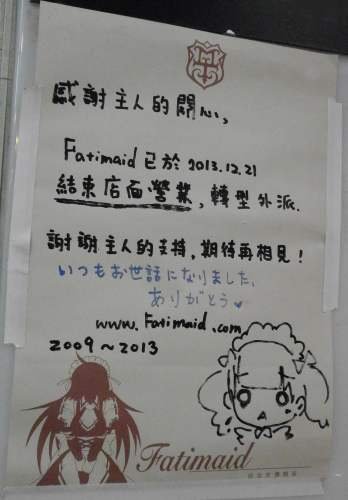 感謝主人的関心,
Fatimaid 已於 2013.12.21
結束店面營業, 轉型外派.
謝謝主人的支持, 期待再相見!
いつもお世話になりました、
ありがとう♥
www.Fatimaid.com
2009~2013
Fatimaid